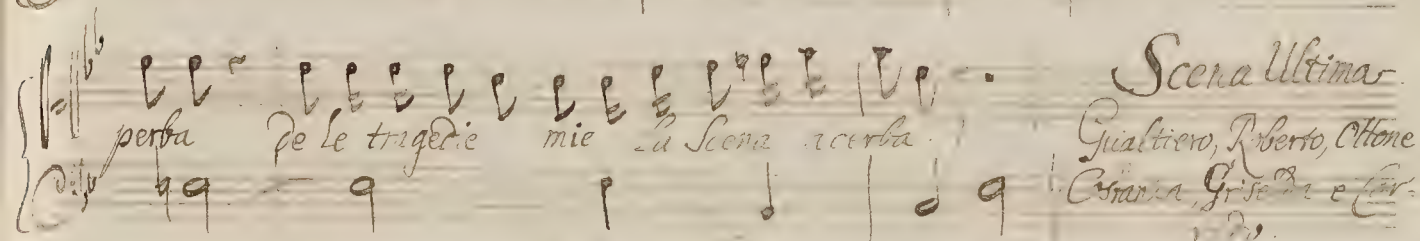 perba de le tragedie mie la Scena acerba.
Scena Ultima
Gualtiero, Roberto, Ottone
Costanza, Griselda e Cor-